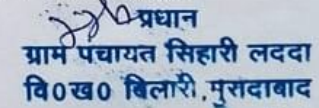 प्रधान
ग्राम पंचायत सिहारी लददा
वि०ख० बिलारी,मुरादाबाद